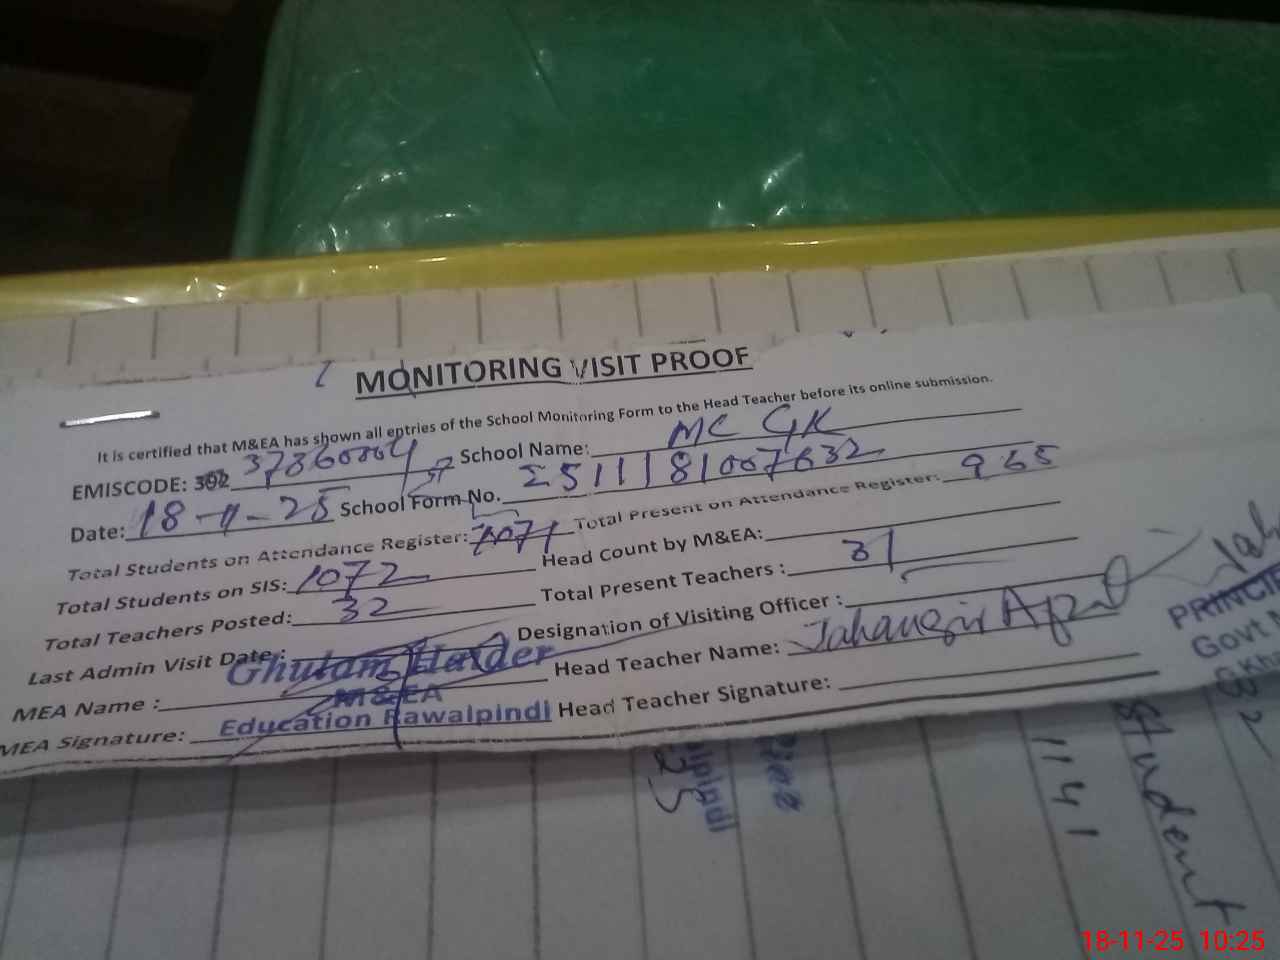 MONITORING VISIT PROOF
It is certified that M&EA has shown all entries of the School Monitoring Form to the Head Teacher before its online submission.
EMISCODE: 37360004 School Name: MC GK
Date: 18-11-25 School Form No. 2511181007632
Total Students on Attendance Register: 1071 Total Present on Attendance Register: 965
Total Students on SIS: 1072 Head Count by M&EA:
Total Teachers Posted: 32 Total Present Teachers : 31
Last Admin Visit Date: Designation of Visiting Officer :
MEA Name : Ghulam Haider Head Teacher Name: Jahangir
M&EA
MEA Signature: Education Rawalpindi Head Teacher Signature:
Govt
Student
1141
25
18-11-25 10:25